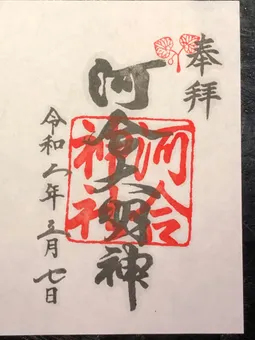 奉拝
河合大明神
河合神社
令和六年三月七日